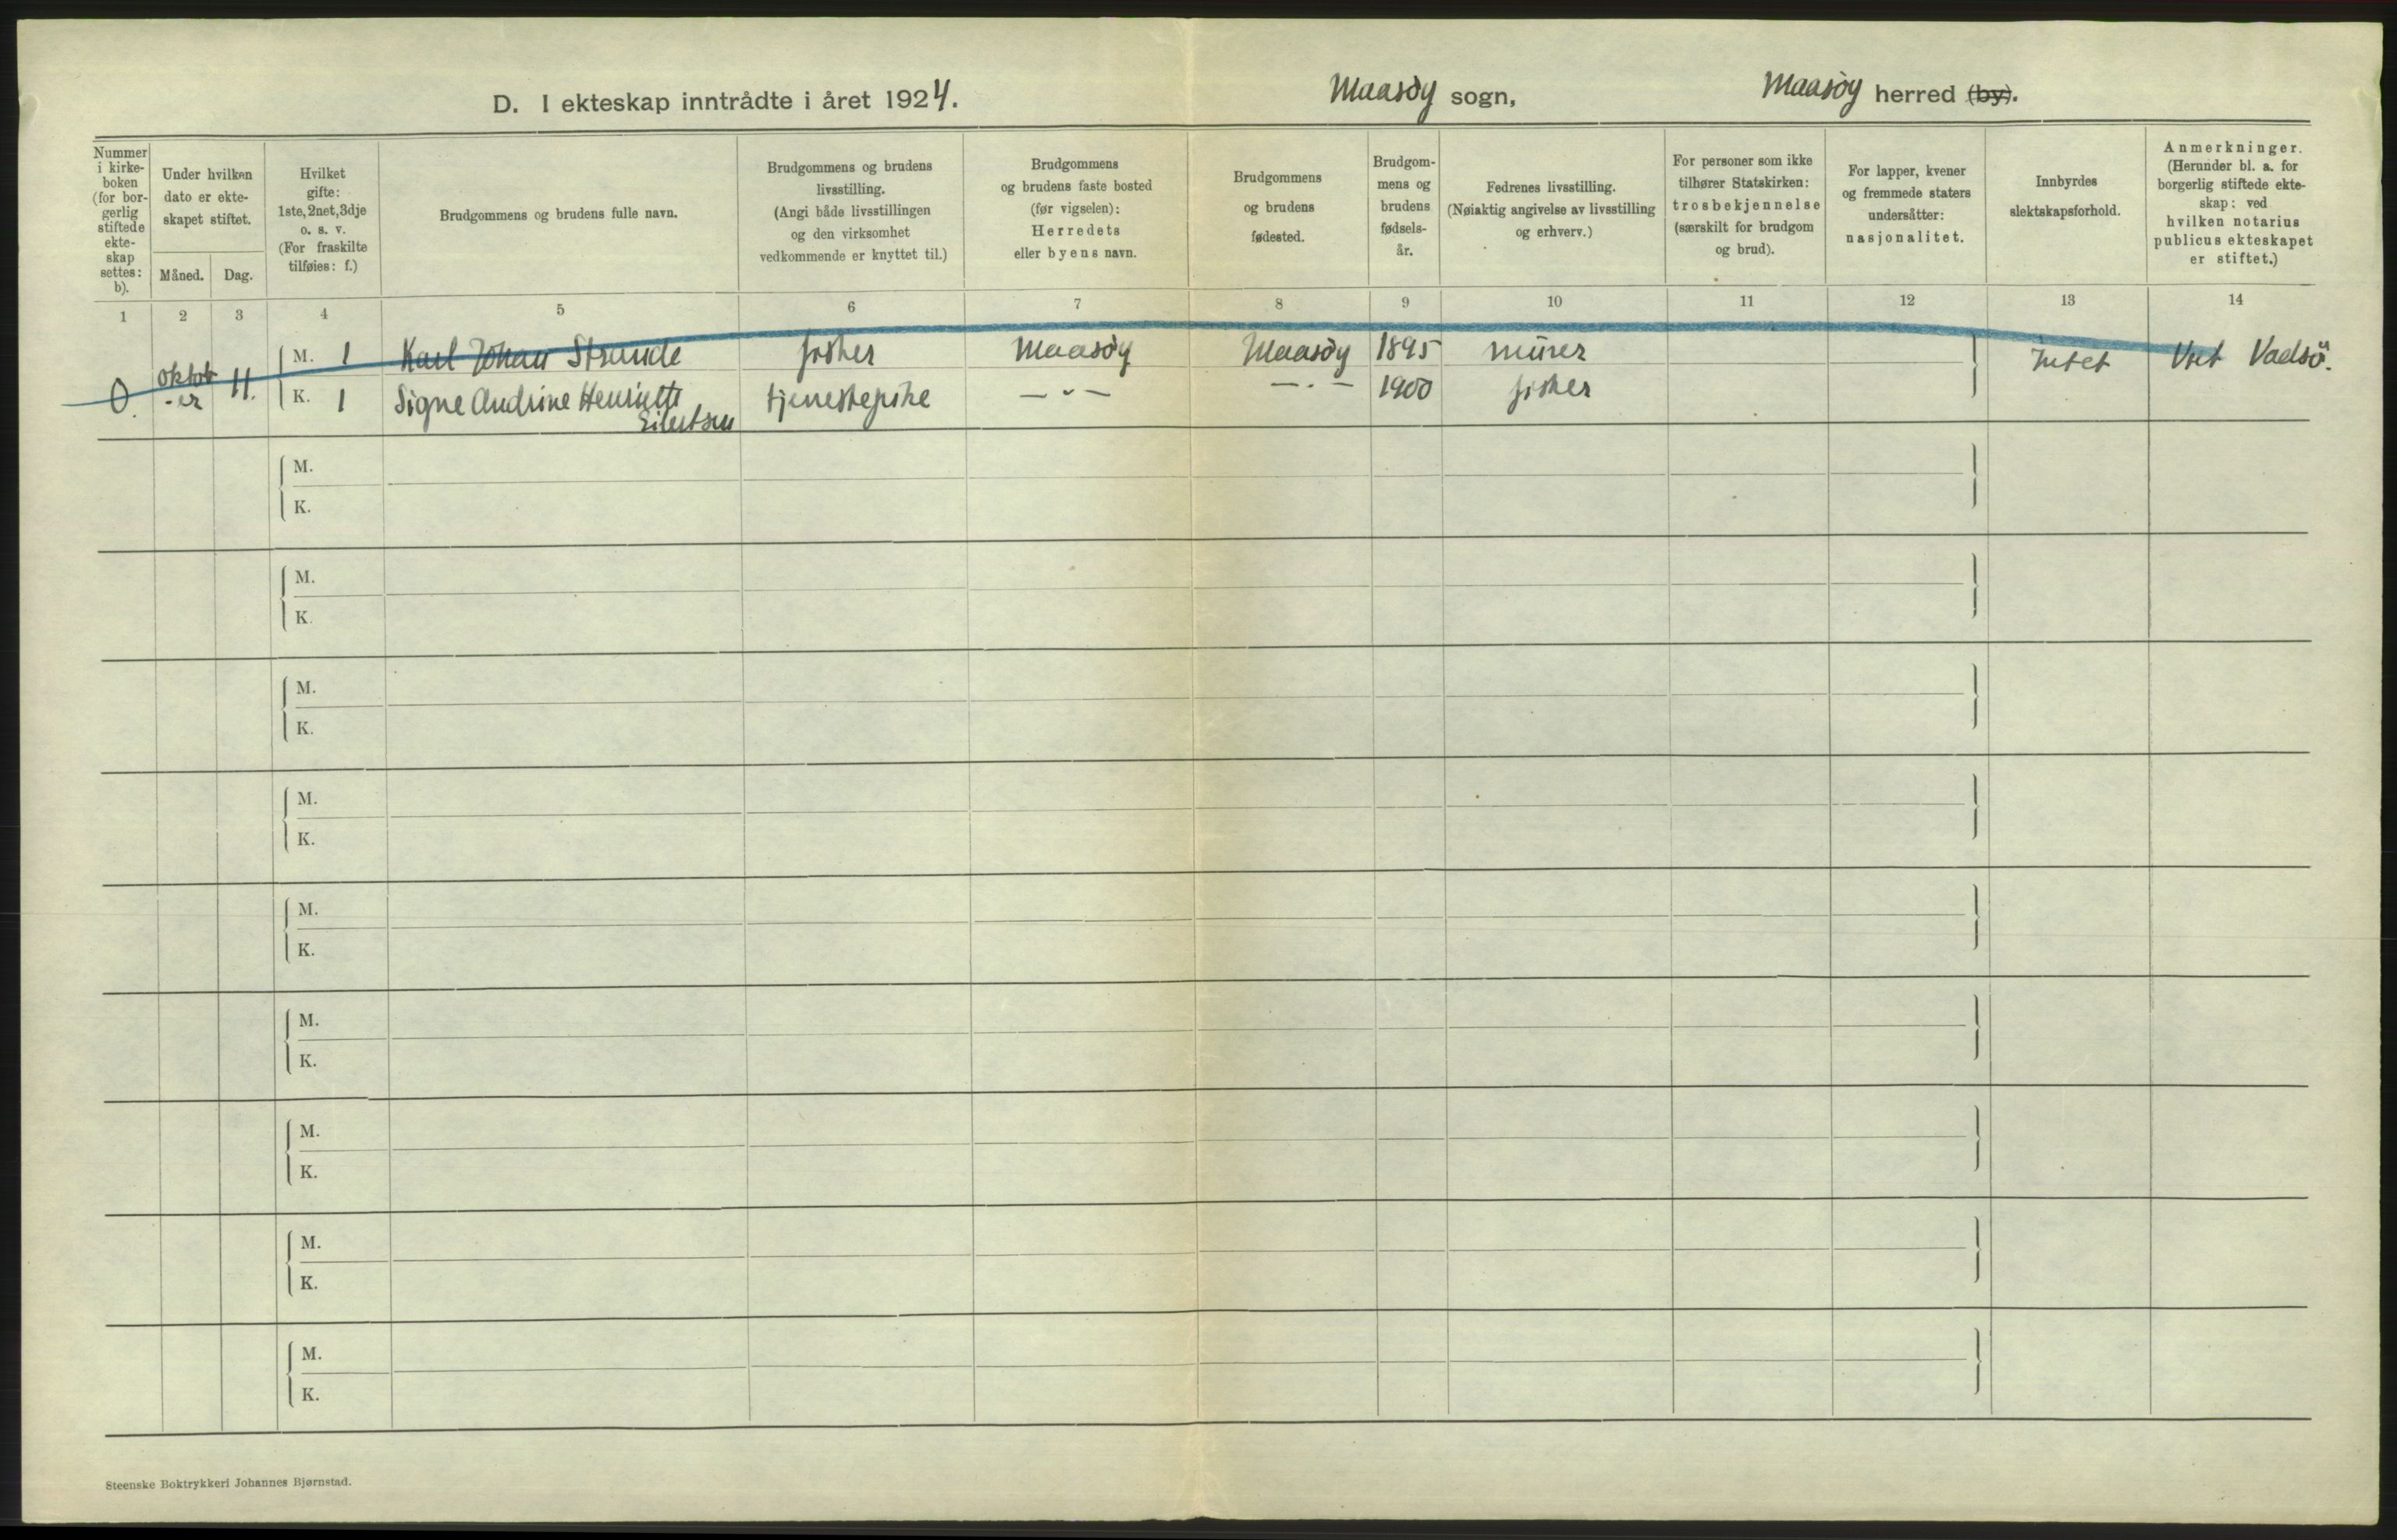 D. I ekteskap inntrådte i året 1924.
Maasöy sogn,
Maasöy herred (by).
Nummer
i kirke-
boken
(for bor-
gerlig
stiftede
ekte-
skap
settes:
b).
Under hvilken
dato er ekte-
skapet stiftet.
Måned. Dag.
Hvilket
gifte:
1ste, 2net, 3dje
o. s. v.
(For fraskilte
tilføies: f.)
Brudgommens og brudens fulle navn.
Brudgommens og brudens
livsstilling.
(Angi både livsstillingen
og den virksomhet
vedkommende er knyttet til.)
Brudgommens
og brudens faste bosted
(før vigselen):
Herredets
eller byens navn.
Brudgommens
og brudens
fødested.
Brudgom-
mens og
brudens
fødsels-
år.
Fedrenes livsstilling.
(Nøiaktig angivelse av livsstilling
og erhverv.)
For personer som ikke
tilhører Statskirken:
trosbekjennelse
(særskilt for brudgom
og brud).
For lapper, kvener
og fremmede staters
undersåtter:
nasjonalitet.
Innbyrdes
slektskapsforhold.
Anmerkninger.
(Herunder bl. a. for
borgerlig stiftede ekte-
skap: ved
hvilken notarius
publicus ekteskapet
er stiftet.)
1 2 3 4 5 6 7 8 9 10 11 12 13 14
0. oktob-er 11.
M. 1 Karl Johan Strande fisker Maasöy Maasöy 1895 murer intet Vset Vadsö.
K. 1 Signe Andrine Henriette tjenestepike — " — — . — 1900 fisker
Eilertsen
M.
K.
M.
K.
M.
K.
M.
K.
M.
K.
M.
K.
M.
K.
M.
K.
M.
K.
Steenske Boktrykkeri Johannes Bjørnstad.